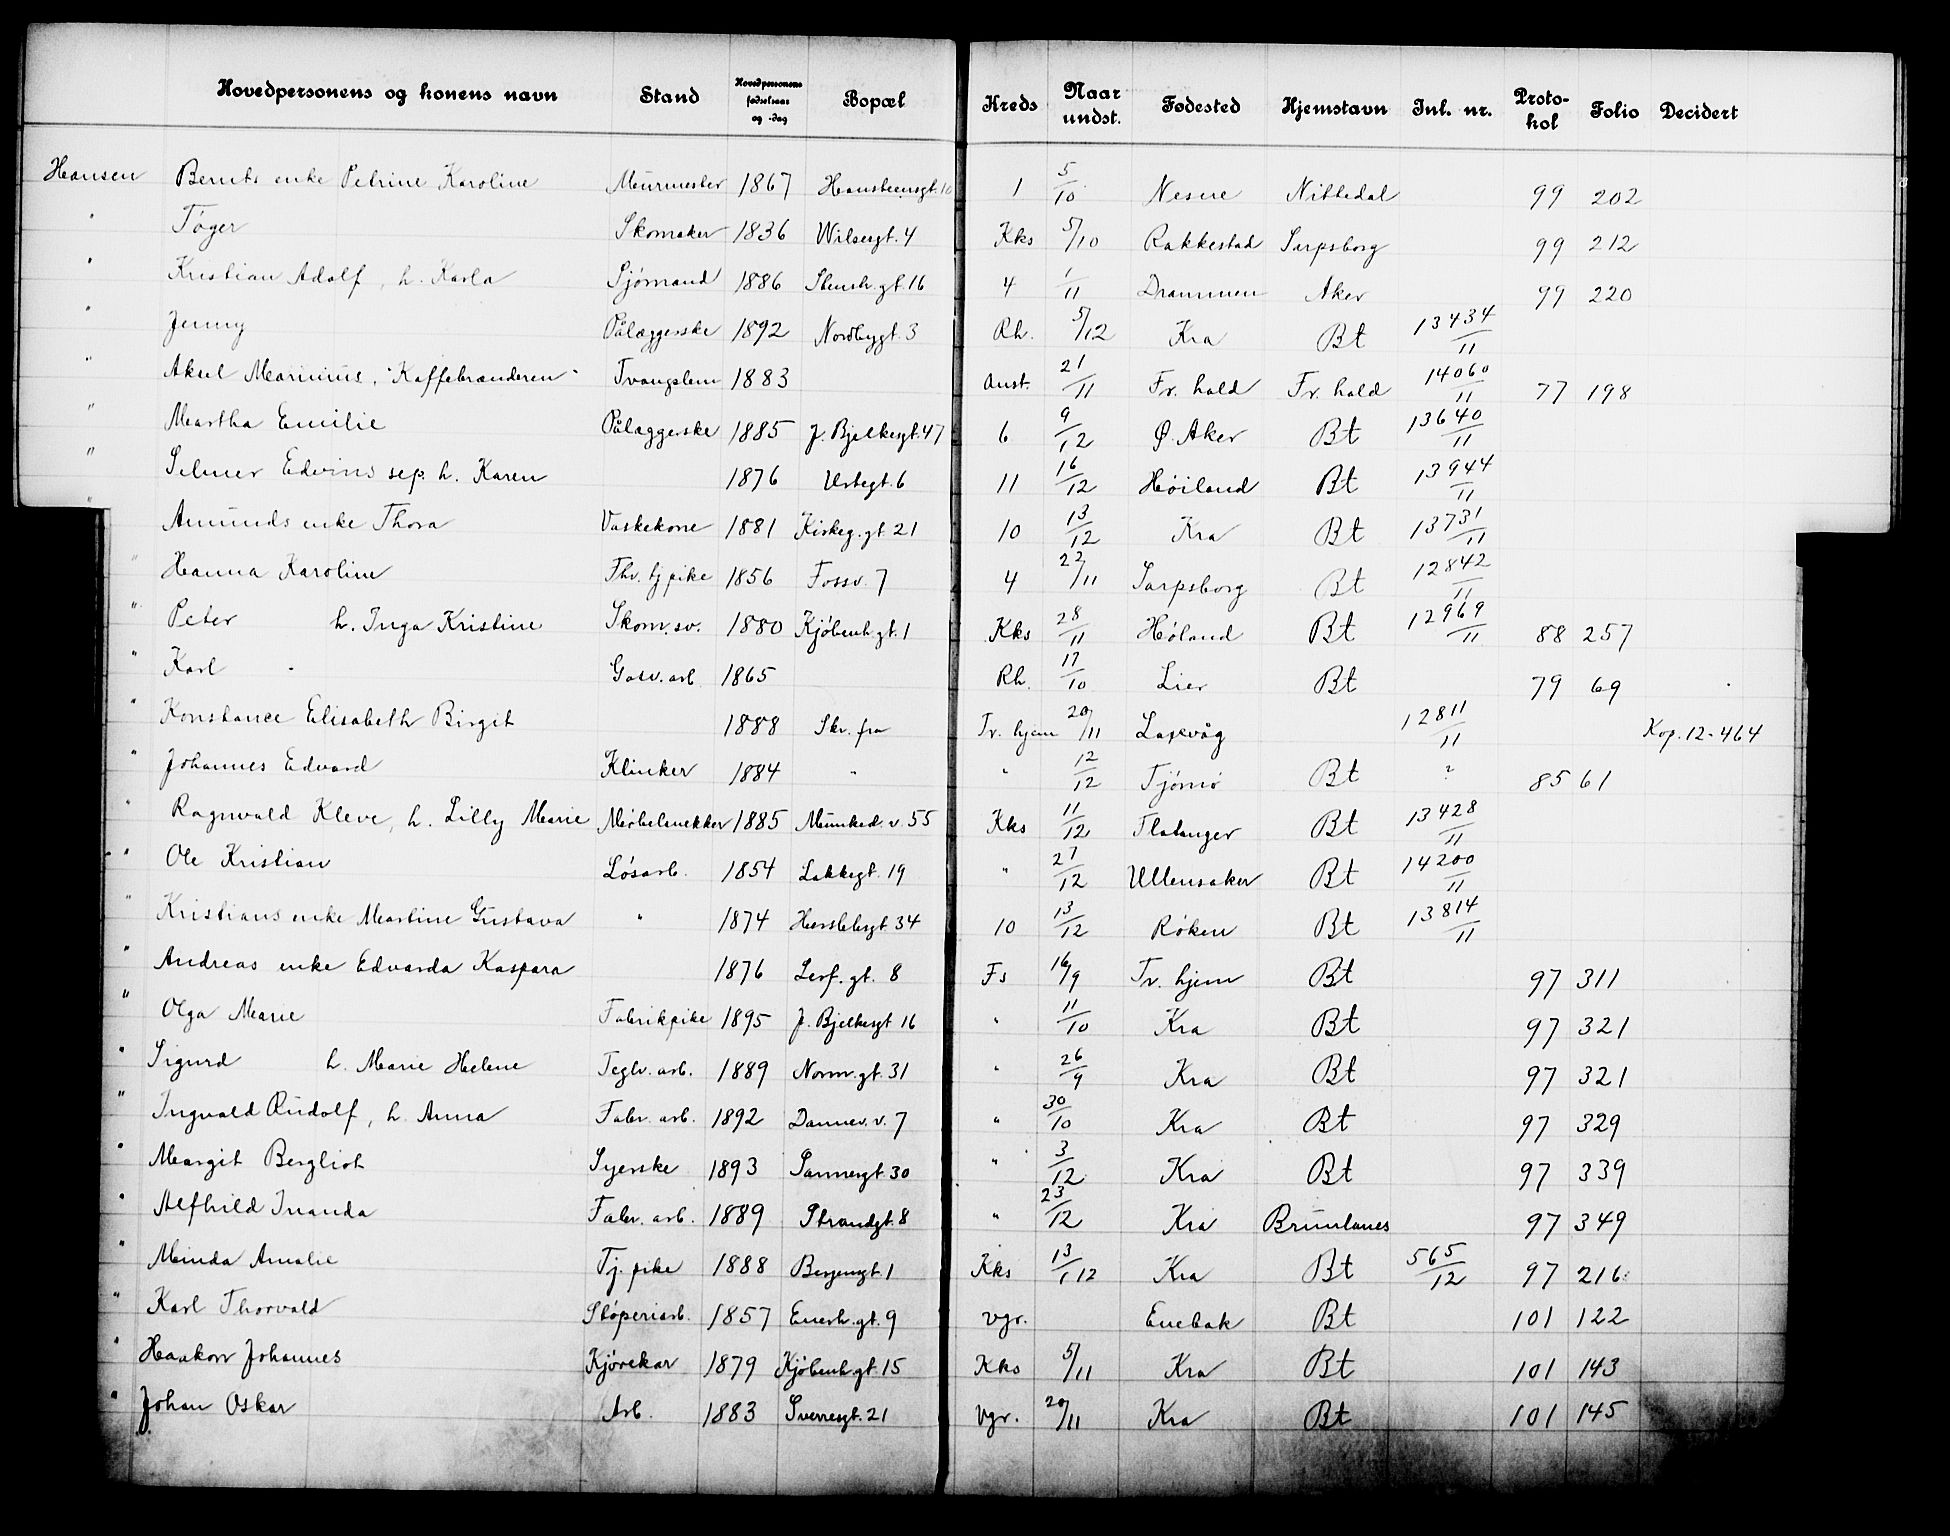 Hovedpersonens og konens navn Stand Hovedpersonens fødselsaar og -dag Bopæl Kreds Naar undst. Fødested Hjemstavn Inl. nr. Protokol Folio Decidert
Hansen Bernts enke Petrine Karoline Murmester 1867 Hansteensgt. 10 1 5/10 Nesne Nittedal 99 202
" Tøger Skomaker 1836 Wilsesgt. 4 Kks 5/10 Rakkestad Sarpsborg 99 212
" Kristian Adolf, h. Karla Sjømand 1886 Stensb. gt. 16 4 1/11 Drammen Aker 99 220
" Jenny Pålæggerske 1892 Nordbygt. 3 Rh. 5/12 Kra Bt 13434/11
" Aksel Marinius, "Kaffebrænderen" Tvangslem 1883 Anst. 21/11 Fr. hald Fr. hald 14060/11 77 198
" Martha Emilie Pålæggerske 1885 J. Bjelkesgt. 47 6 9/12 Ø. Aker Bt 13640/11
" Selmer Edvins sep. h. Karen 1876 Urtegt. 6 11 16/12 Høiland Bt 13944/11
" Amunds enke Thora Vaskekone 1881 Kirkeg. gt. 21 10 13/12 Kra Bt 13731/11
" Hanna Karoline Fhv. tj pike 1856 Fossv. 7 4 22/11 Sarpsborg Bt 12842/11
" Peter h. Inga Kristine Skom. sv. 1880 Kjøbenh. gt. 1 Kks 28/11 Høland Bt 12969/11 88 257
" Karl Gasv. arb. 1865 Rh. 17/10 Lier Bt 79 69
" Konstance Elisabeth Birgit 1888 Skr. fra Tr. hjem 20/11 Laxevåg 12811/11 Kop. 12-464
" Johannes Edvard Klinker 1884 " " 12/12 Tjømø Bt ? 85 61
" Ragnvald Kleve, h. Lilly Marie Møbelsnekker 1885 Munked. v. 55 Kks 11/12 Flatanger Bt 13428/11
" Ole Kristian Løsarb. 1854 Lakkegt. 19 " 27/12 Ullensaker Bt 14200/11
" Kristians enke Martine Gustava " 1874 Herslebsgt 34 10 13/12 Røken Bt 13814/11
" Andreas enke Edvarda Kaspara 1876 Lerf. gt. 8 Fs 16/9 Tr. hjem Bt 97 311
" Olga Marie Fabrikpike 1895 J. Bjelkesgt 16 " 11/10 Kra Bt 97 321
" Sigurd h. Marie Helene Teglv. arb. 1889 Norm. gt. 31 " 26/9 Kra Bt 97 321
" Ingvald Rudolf, h. Anna Fabr. arb. 1892 Dannev. v. 7 " 30/10 Kra Bt 97 329
" Margit Bergliot Syerske 1893 Sannergt. 30 " 3/12 Kra Bt 97 339
" Alfhild Inanda Fabr. arb. 1889 Strandgt. 8 " 23/12 Kra Brunlanes 97 349
" Minda Amalie Tj. pike 1888 Bergengt. 1 Kks 13/1 12 Kra Bt 565/12 97 216
" Karl Thorvald Støperiarb. 1857 Enerh. gt. 9 Vgr. Enebak Bt 101 122
" Haakon Johannes Kjørekar 1879 Kjøbenh. gt. 15 Kks 5/11 Kra Bt 101 143
" Johan Oskar Arb. 1883 Sverresgt. 21 Vgr. 20/11 Kra Bt 101 145